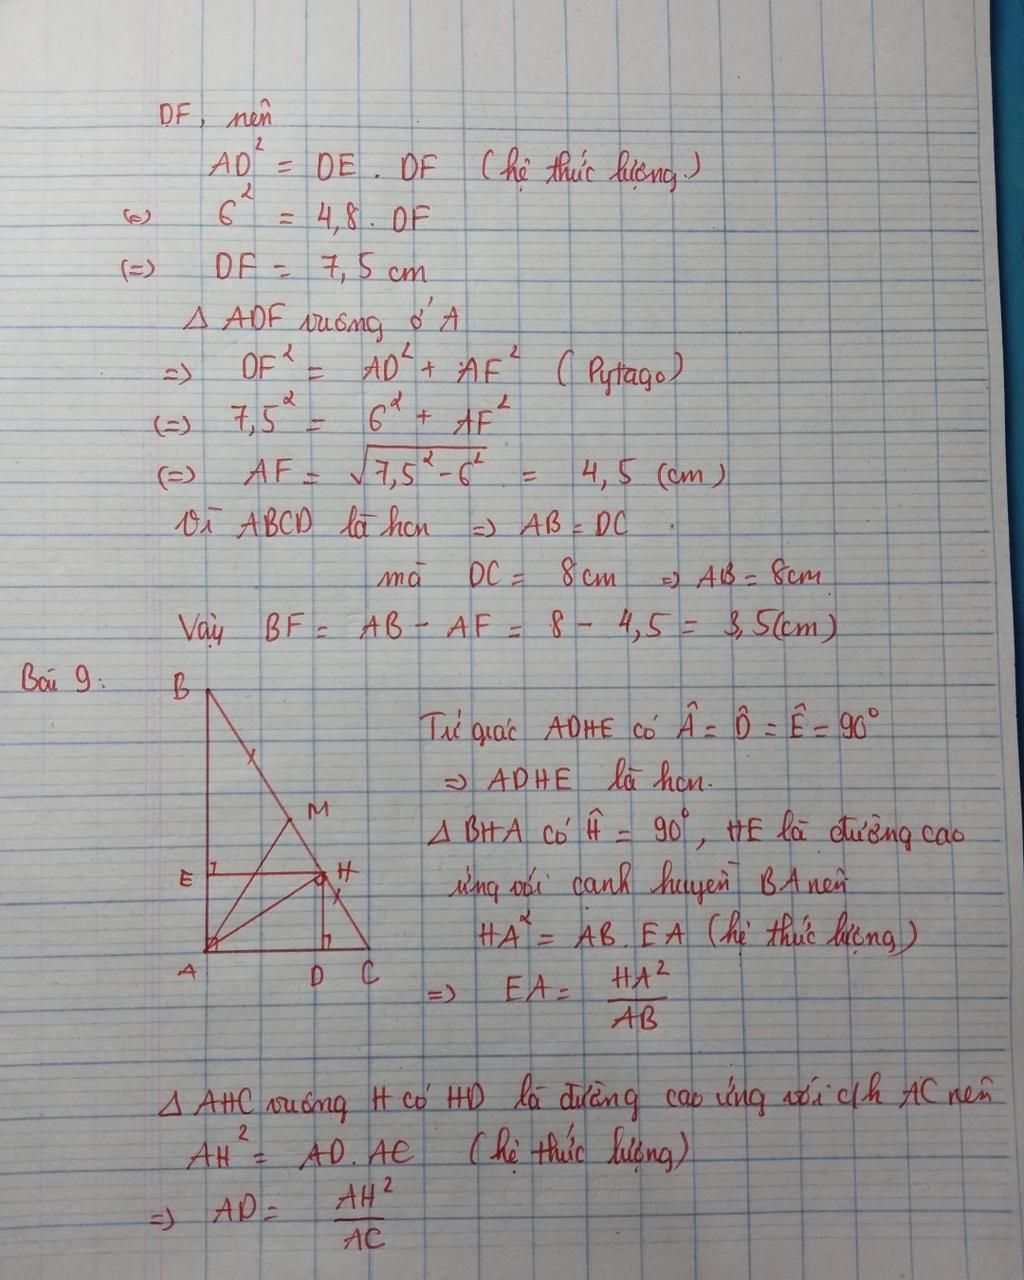 DF, nên
AD² = DE . DF (hệ thức lượng.)
(=) 6² = 4,8 . DF
(=) DF = 7,5 cm
Δ ADF vuông ở A
=) DF² = AD² + AF² (Pytago)
(=) 7,5² = 6² + AF²
(=) AF = √(7,5² - 6²) = 4,5 (cm)
Vì ABCD là hcn =) AB = DC
mà DC = 8cm =) AB = 8cm
Vậy BF = AB - AF = 8 - 4,5 = 3,5(cm)
Bài 9:
B
M
E
H
A
D
C
Tứ giác ADHE có Â = D̂ = Ê = 90°
=) ADHE là hcn.
Δ BHA có Ĥ = 90°, HE là đường cao
ứng với cạnh huyền BA nên
HA² = AB . EA (hệ thức lượng)
=) EA = HA²/AB
Δ AHC vuông H có HD là đường cao ứng với c/h AC nên
AH² = AD. AC (hệ thức lượng)
=) AD = AH²/AC